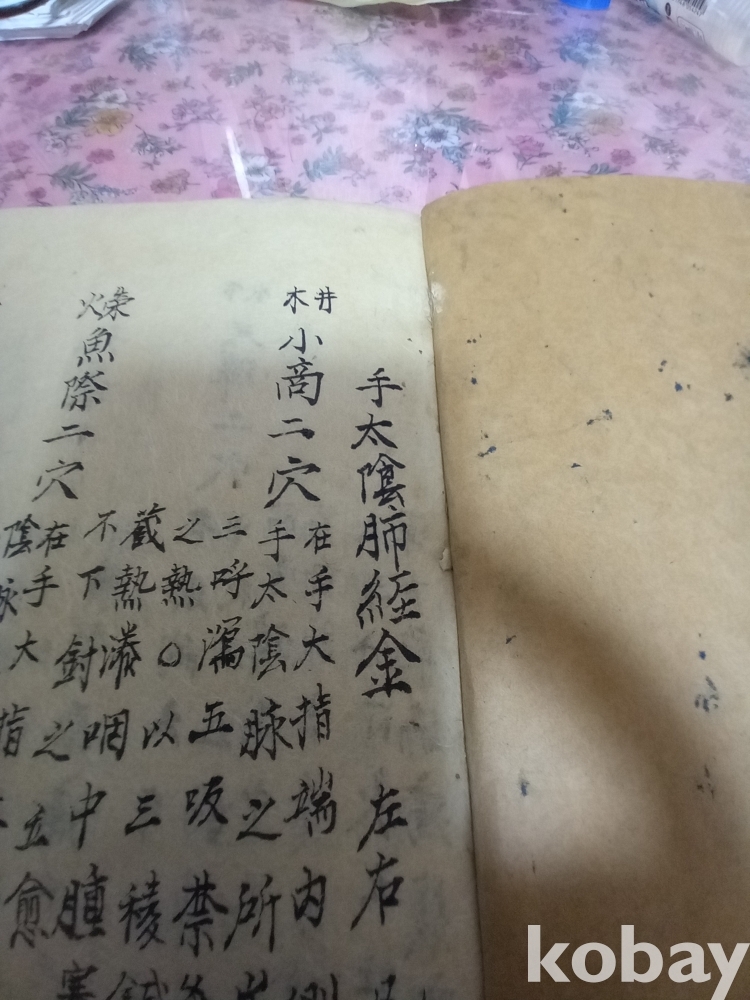 手太陰肺経金 左右
井木
小商二穴
在手大指端内側
手太陰脉之所出
三呼瀉五吸禁
之熱○以三稜鍼
蔵熱漆咽中腫
不下封之立愈
荥火
魚際二穴
在手大指
陰脉
kobay